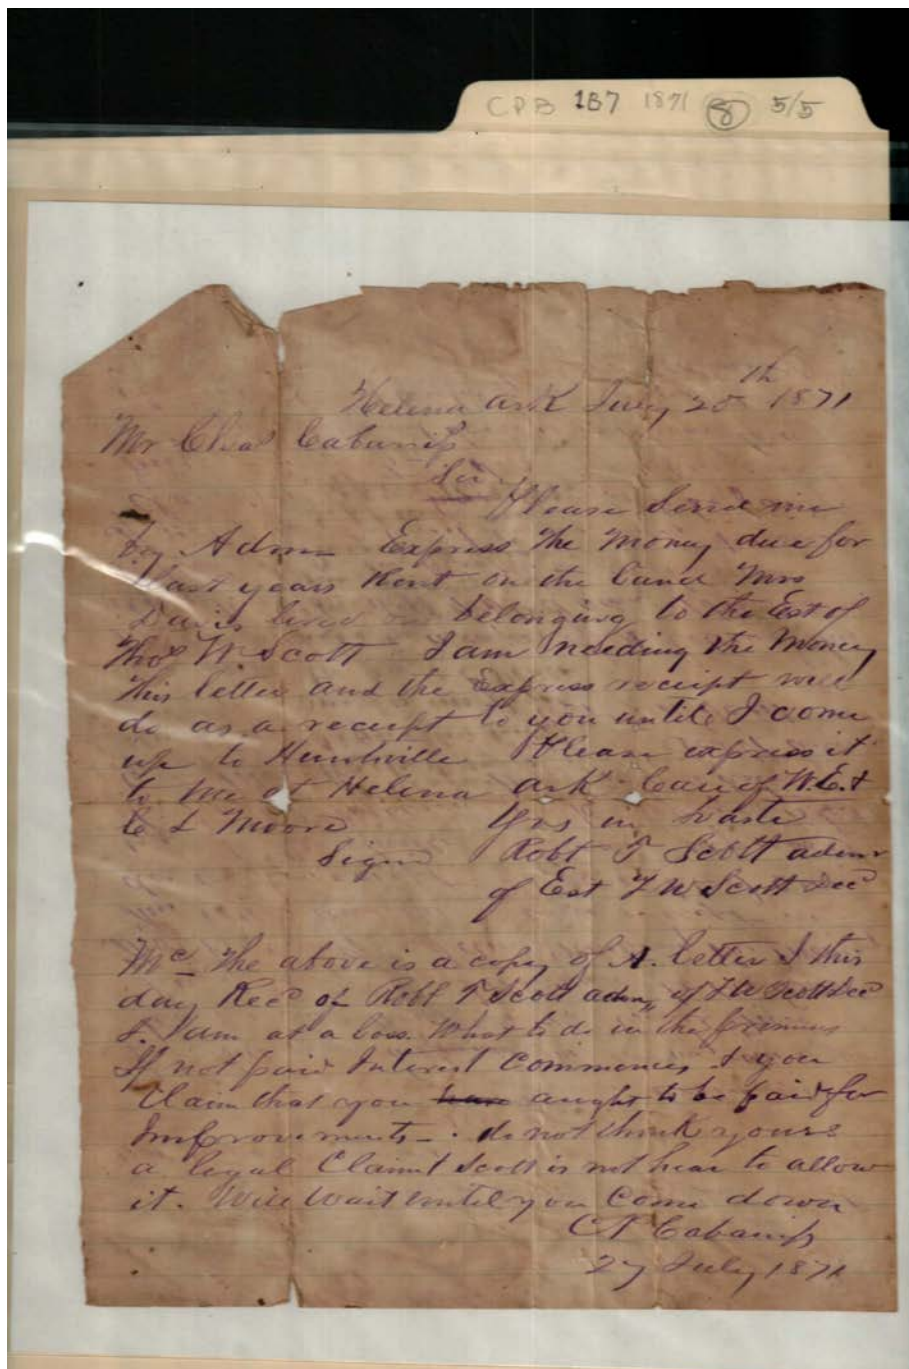 CPB 1B7 1871 8 5/5
Helena Ark July 25th 1871
Mr Chas Cabaniss
Sir
Please Send me
by Adms Express the Money due for
last years Rent on the Land Mrs
Davis lived on belonging to the Est of
Thos W. Scott I am needing the Money
This letter and the Express receipt will
do as a receipt to you until I come
up to Huntsville Please express it
to me at Helena Ark Care of W.E. &
C L Moore Yrs in haste
Signed Robt T Scott admr
of Est T W Scott Decd
The above is a copy of A. letter I this
day Recd of Robt T Scott admr of T W Scott Decd
& I am at a loss What to do in the
If not paid Interest Commences & you
Claim that you have aught to be paid for
Improvements - do not think yours
a legal Claim & Scott is not hear to allow
it. Will Wait until you Come down
C Cabaniss
27 July 1871